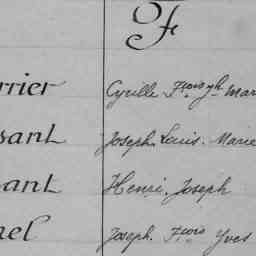 F
rrier Cyrille Fçois Jh Mar
sant Joseph Louis Marie
ant Henri Joseph
nel Joseph Fçois Yves